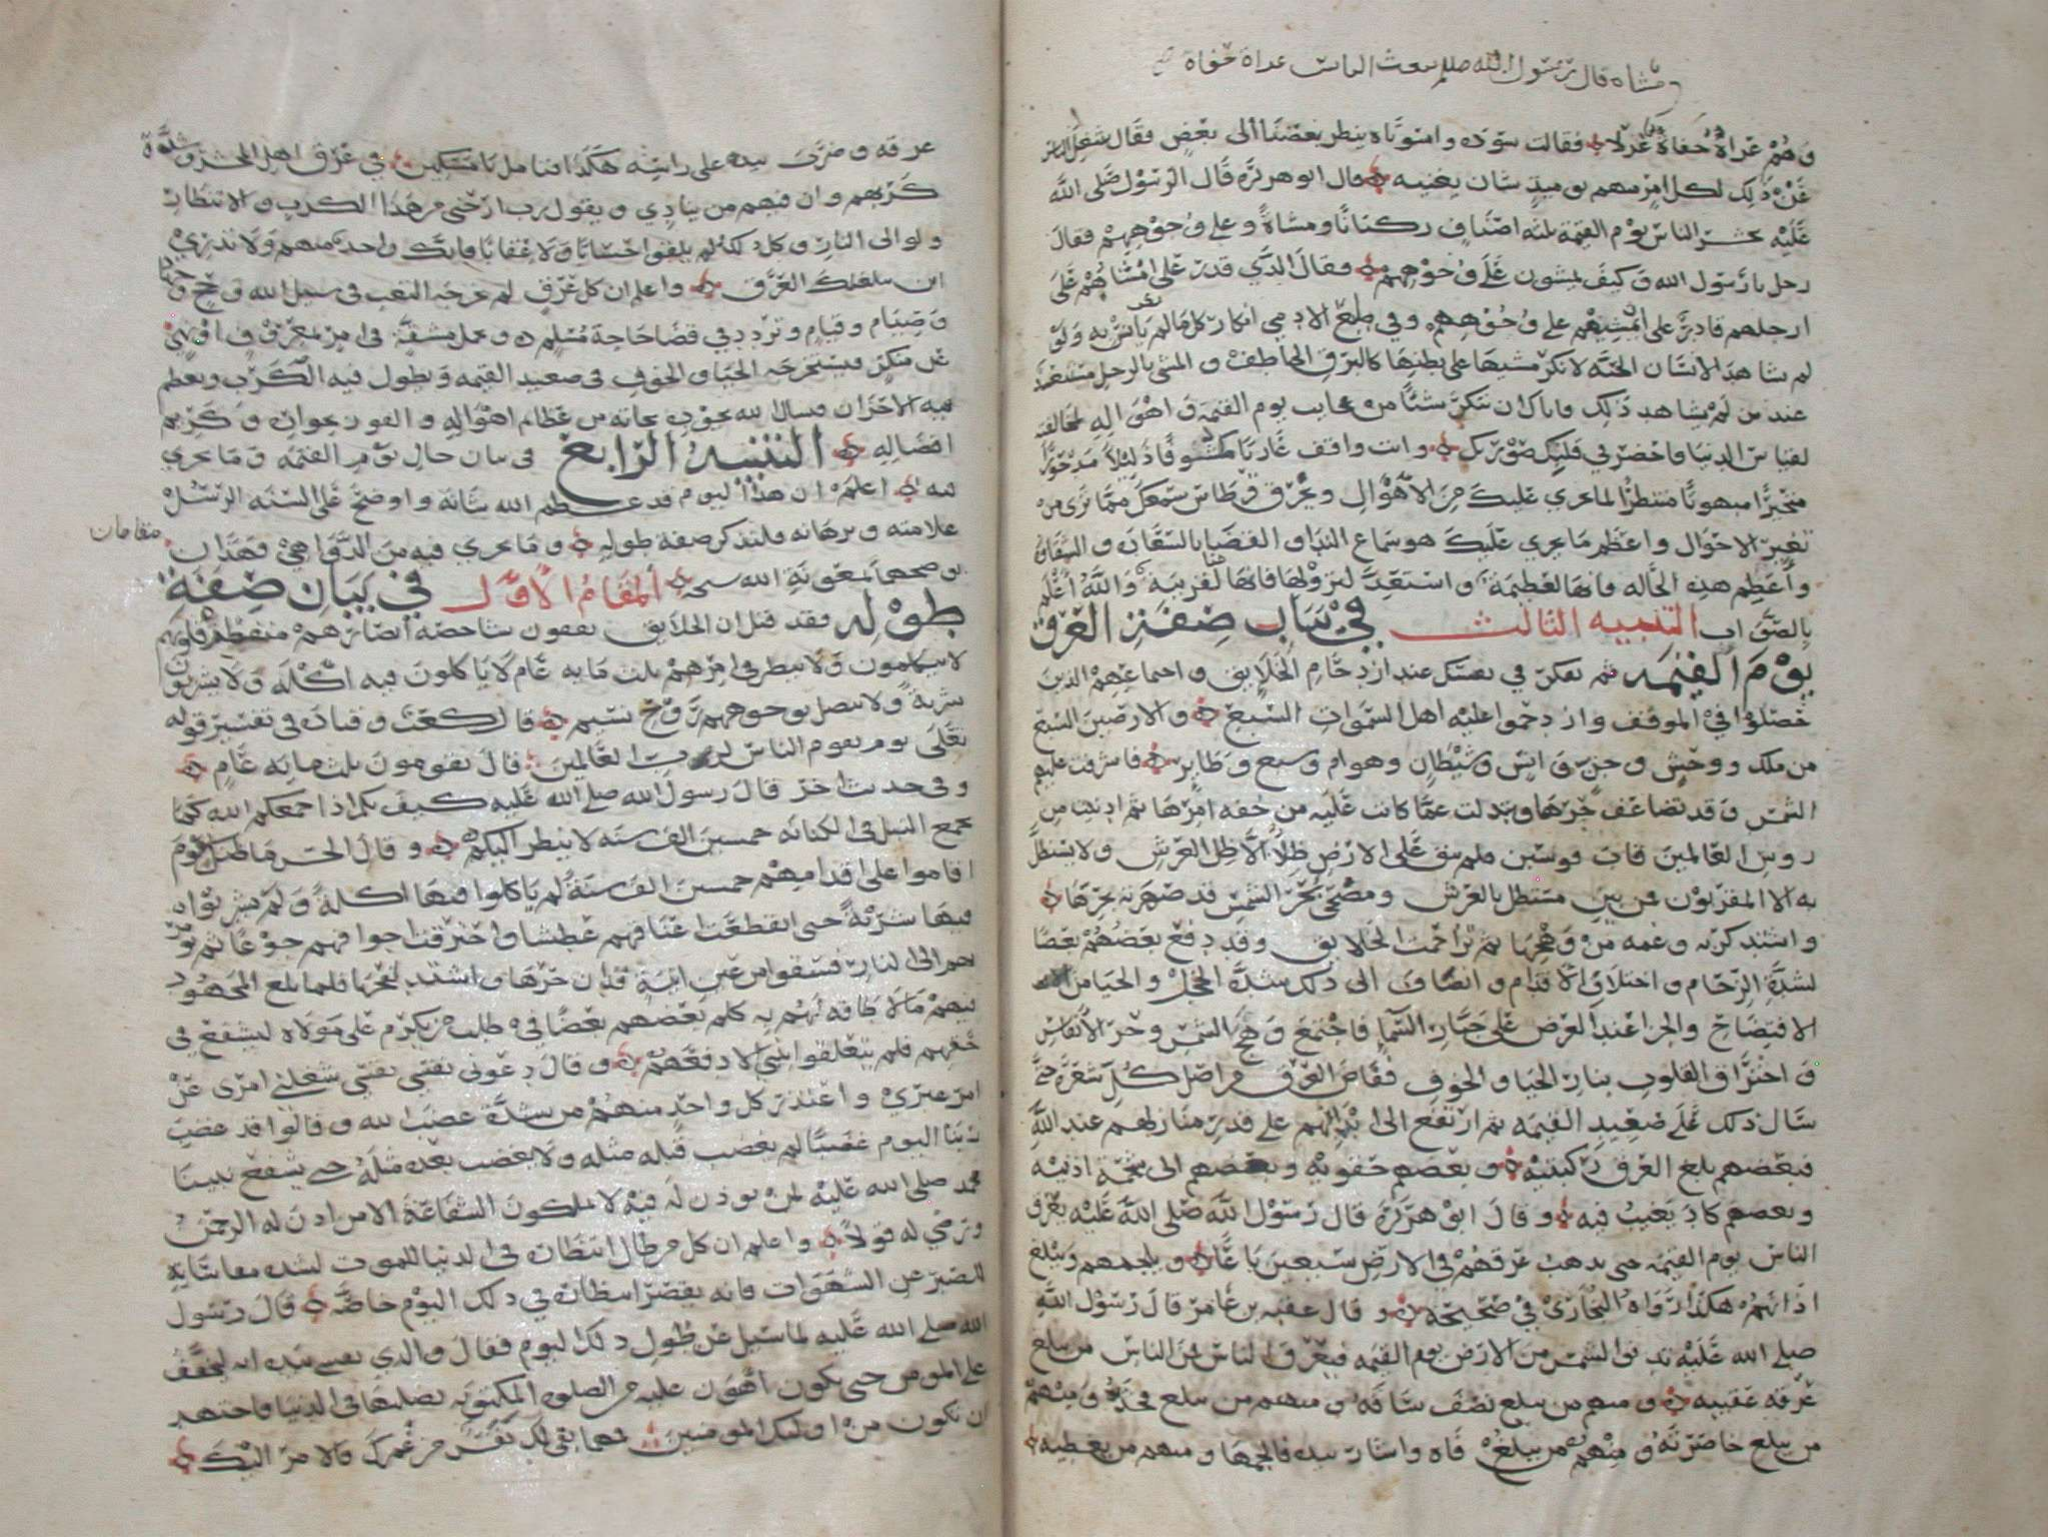 ومشاه قال رسول الله صللم يبعث الناس عراة حفاة
وهم عراة حفاة غرلا فقالت سوده واسوتاه ينظر بعضنا الى بعض فقال شغل الناس
عن ذلك لكل امرء منهم يوميذ شان يغنيه قال ابو هريره قال الرسول صلى الله
عليه يحشر الناس يوم القيمة ثلثه اصناف ركبانا ومشاة وعلى وجوههم فقال
رجل يا رسول الله وكيف يمشون على وجوههم فقال الذي قدر على امشاهم على
ارجلهم قادر على ان يمشيهم على وجوههم وفي طبع الادمي انكار كل ما لم يانس به ولو
لم يشاهد الانسان الحيه لانكر مشيها على بطنها كالبرق الخاطف والمشي بالرجل مستبعد
عند من لم يشاهد ذلك واياك ان تنكر شيئا من عجايب يوم القيمة واهواله لمخالفته
لقياس الدنيا واحضر في قلبك صورتك وانت واقف عاريا مكشوفا ذليلا مدحورا
متحيرا مبهوتا منتظرا لما يجري عليك من الاهوال ويحرق قرطاس سمعك مما ترى من
تغير الاحوال واعظم ما يجري عليك هو سماع الندا والقضا بالسعادة والشقاوة
واعظم هذه الحاله فانها لعظيمة واستعد لنزولها فانها لقريبة والله اعلم
بالصواب التنبيه الثالث في بيان صفة العرق
يوم القيمه ثم تفكر في نفسك عند ازدحام الخلايق واجماعهم الذين
حصلوا في الموقف وازدحموا عليه اهل السموات السبع والارضين السبع
من ملك ووحش وجن وانس وشيطان وهوام وسبع وطاير فاشرقت عليهم
الشمس وقد تضاعف حرها وبدلت عما كانت عليه من خفه امرها ثم ادنيت من
روس العالمين قاب قوسين فلم يبق على الارض ظلا الا ظل العرش ولا يستظل
به الا المقربون فمن بين مستظل بالعرش ومضحي بحر الشمس قد صهرته بحرها
واشتد كربه وغمه من وهجها ثم تزاحمت الخلايق وقد دفع بعضهم بعضا
لشدة الزحام واختلاف الاقدام وانضاف الى ذلك شدة الخجل والحيا من
الافتضاح والخزا عند العرض على جبار السما فاجتمع وهج الشمس وحر الانفاس
واحتراق القلوب بنار الحيا والخوف ففاض العرق من اصل كل شعرة حتى
سال ذلك على صعيد القيمه ثم ارتفع الى ابدانهم على قدر منازلهم عند الله
فبعضهم بلغ العرق ركبتيه وبعضهم حقويه وبعضهم الى شحمة اذنيه
وبعضهم كاد يغيب فيه وقال ابو هريرة قال رسول الله صلى الله عليه يعرق
الناس يوم القيمه حتى يذهب عرقهم في الارض سبعين باعا ويلجمهم ويبلغ
اذانهم هكذا رواه البخاري في صحيحه وقال عقبه بن عامر قال رسول الله
صلى الله عليه تدنو الشمس من الارض يوم القيمه فيعرق الناس فمن الناس من يبلغ
عرقه عقبيه ومنهم من يبلغ نصف ساقه ومنهم من يبلغ فخذه ومنهم
من يبلغ خاصرته ومنهم من يبلغ فاه واشار بيده فالجمها ومنهم من يغطيه
عرقه وضرب بيده على راسه هكذا فتامل يا مسكين في عرق اهل المحشر وشدة
كربهم وان فيهم من ينادي ويقول رب ارحني من هذا الكرب والانتظار
ولو الى النار وكل ذلك لم يلقوا حسابا ولا عقابا فانك واحد منهم ولا تدري
اين يبلغ بك العرق واعلم ان كل عرق لم يخرجه التعب في سبيل الله وحج وجهاد
وصيام وقيام وتردد في قضا حاجة مسلم وحمل مشقة في امر بمعروف او نهي
عن منكر فيستخرجه الحيا والخوف في صعيد القيمه ويطول فيه الكرب ويعظم
فيه الاحزان فنسال الله بعونه نجانه من عظايم اهواله والفوز بجوازه وكريم
افضاله التنبيه الرابع في بيان حال يوم القيمه وما يجري
فيه اعلم ان هذا اليوم قد عظم الله شانه واوضح على السنه الرسل
علامته وبرهانه فلنذكر صفة طوله وما يجري فيه من الدواهي وهذان
مقامان
نوضحهما بمعونة الله سبحه المقام الاول في بيان صفة
طوله فقد قيل ان الخلايق يقفون شاخصه ابصارهم منفطرة قلوبهم
لا يتكلمون ولا ينظر في امرهم ثلث مايه عام لا ياكلون فيه اكلة ولا يشربون
شربة ولا يصل بوجوههم روح نسيم قال كعب وقتادة في تفسير قوله
تعلى يوم يقوم الناس لرب العالمين قال يقومون ثلث مائة عام
وفي حديث اخر قال رسول الله صلى الله عليه كيف بكم اذا جمعكم الله كما
يجمع النبل في الكنانه خمسين الف سنه لا ينظر اليكم وقال الحسن ما ظنك بيوم
اقاموا على اقدامهم خمسين الف سنة لم ياكلوا فيها اكلة ولم يشربوا
فيها شربة حتى انقطعت اعناقهم عطشا واحترقت اجوافهم جوعا ثم يؤمر
بهم الى النار فسقوا من عين انية قد ان حرها واشتد لفحها فلما بلغ المجهود
فيهم ما لا طاقه لهم به كلم بعضهم بعضا في طلب من يكرم على مولاه ليشفع في
حقهم فلم يتعلقوا بنبي الا دفعهم وقال دعوني نفسي نفسي شغلني امري عن
امر غيري واعتذر كل واحد منهم من شدة غضب الله وقالوا قد غضب
ربنا اليوم غضبا لم يغضب قبله مثله ولا يغضب بعده مثله حتى يشفع نبينا
محمد صلى الله عليه لمن يوذن له فيه لا يملكون الشفاعة الا من اذن له الرحمن
ورضي له قولا واعلم ان كل من طال انتظاره في الدنيا للموت لشدة مقاساته
للصبر عن الشهوات فانه يقصر انتظاره في ذلك اليوم خاصة قال رسول
الله صلى الله عليه لما سيل عن طول ذلك اليوم فقال والذي نفسي بيده انه ليخفف
على المومن حتى يكون اهون عليه من الصلوه المكتوبه يصليها في الدنيا فاجتهد
ان تكون من اوليك المومنين فما بقي لك نفس من عمرك فالامر اليك